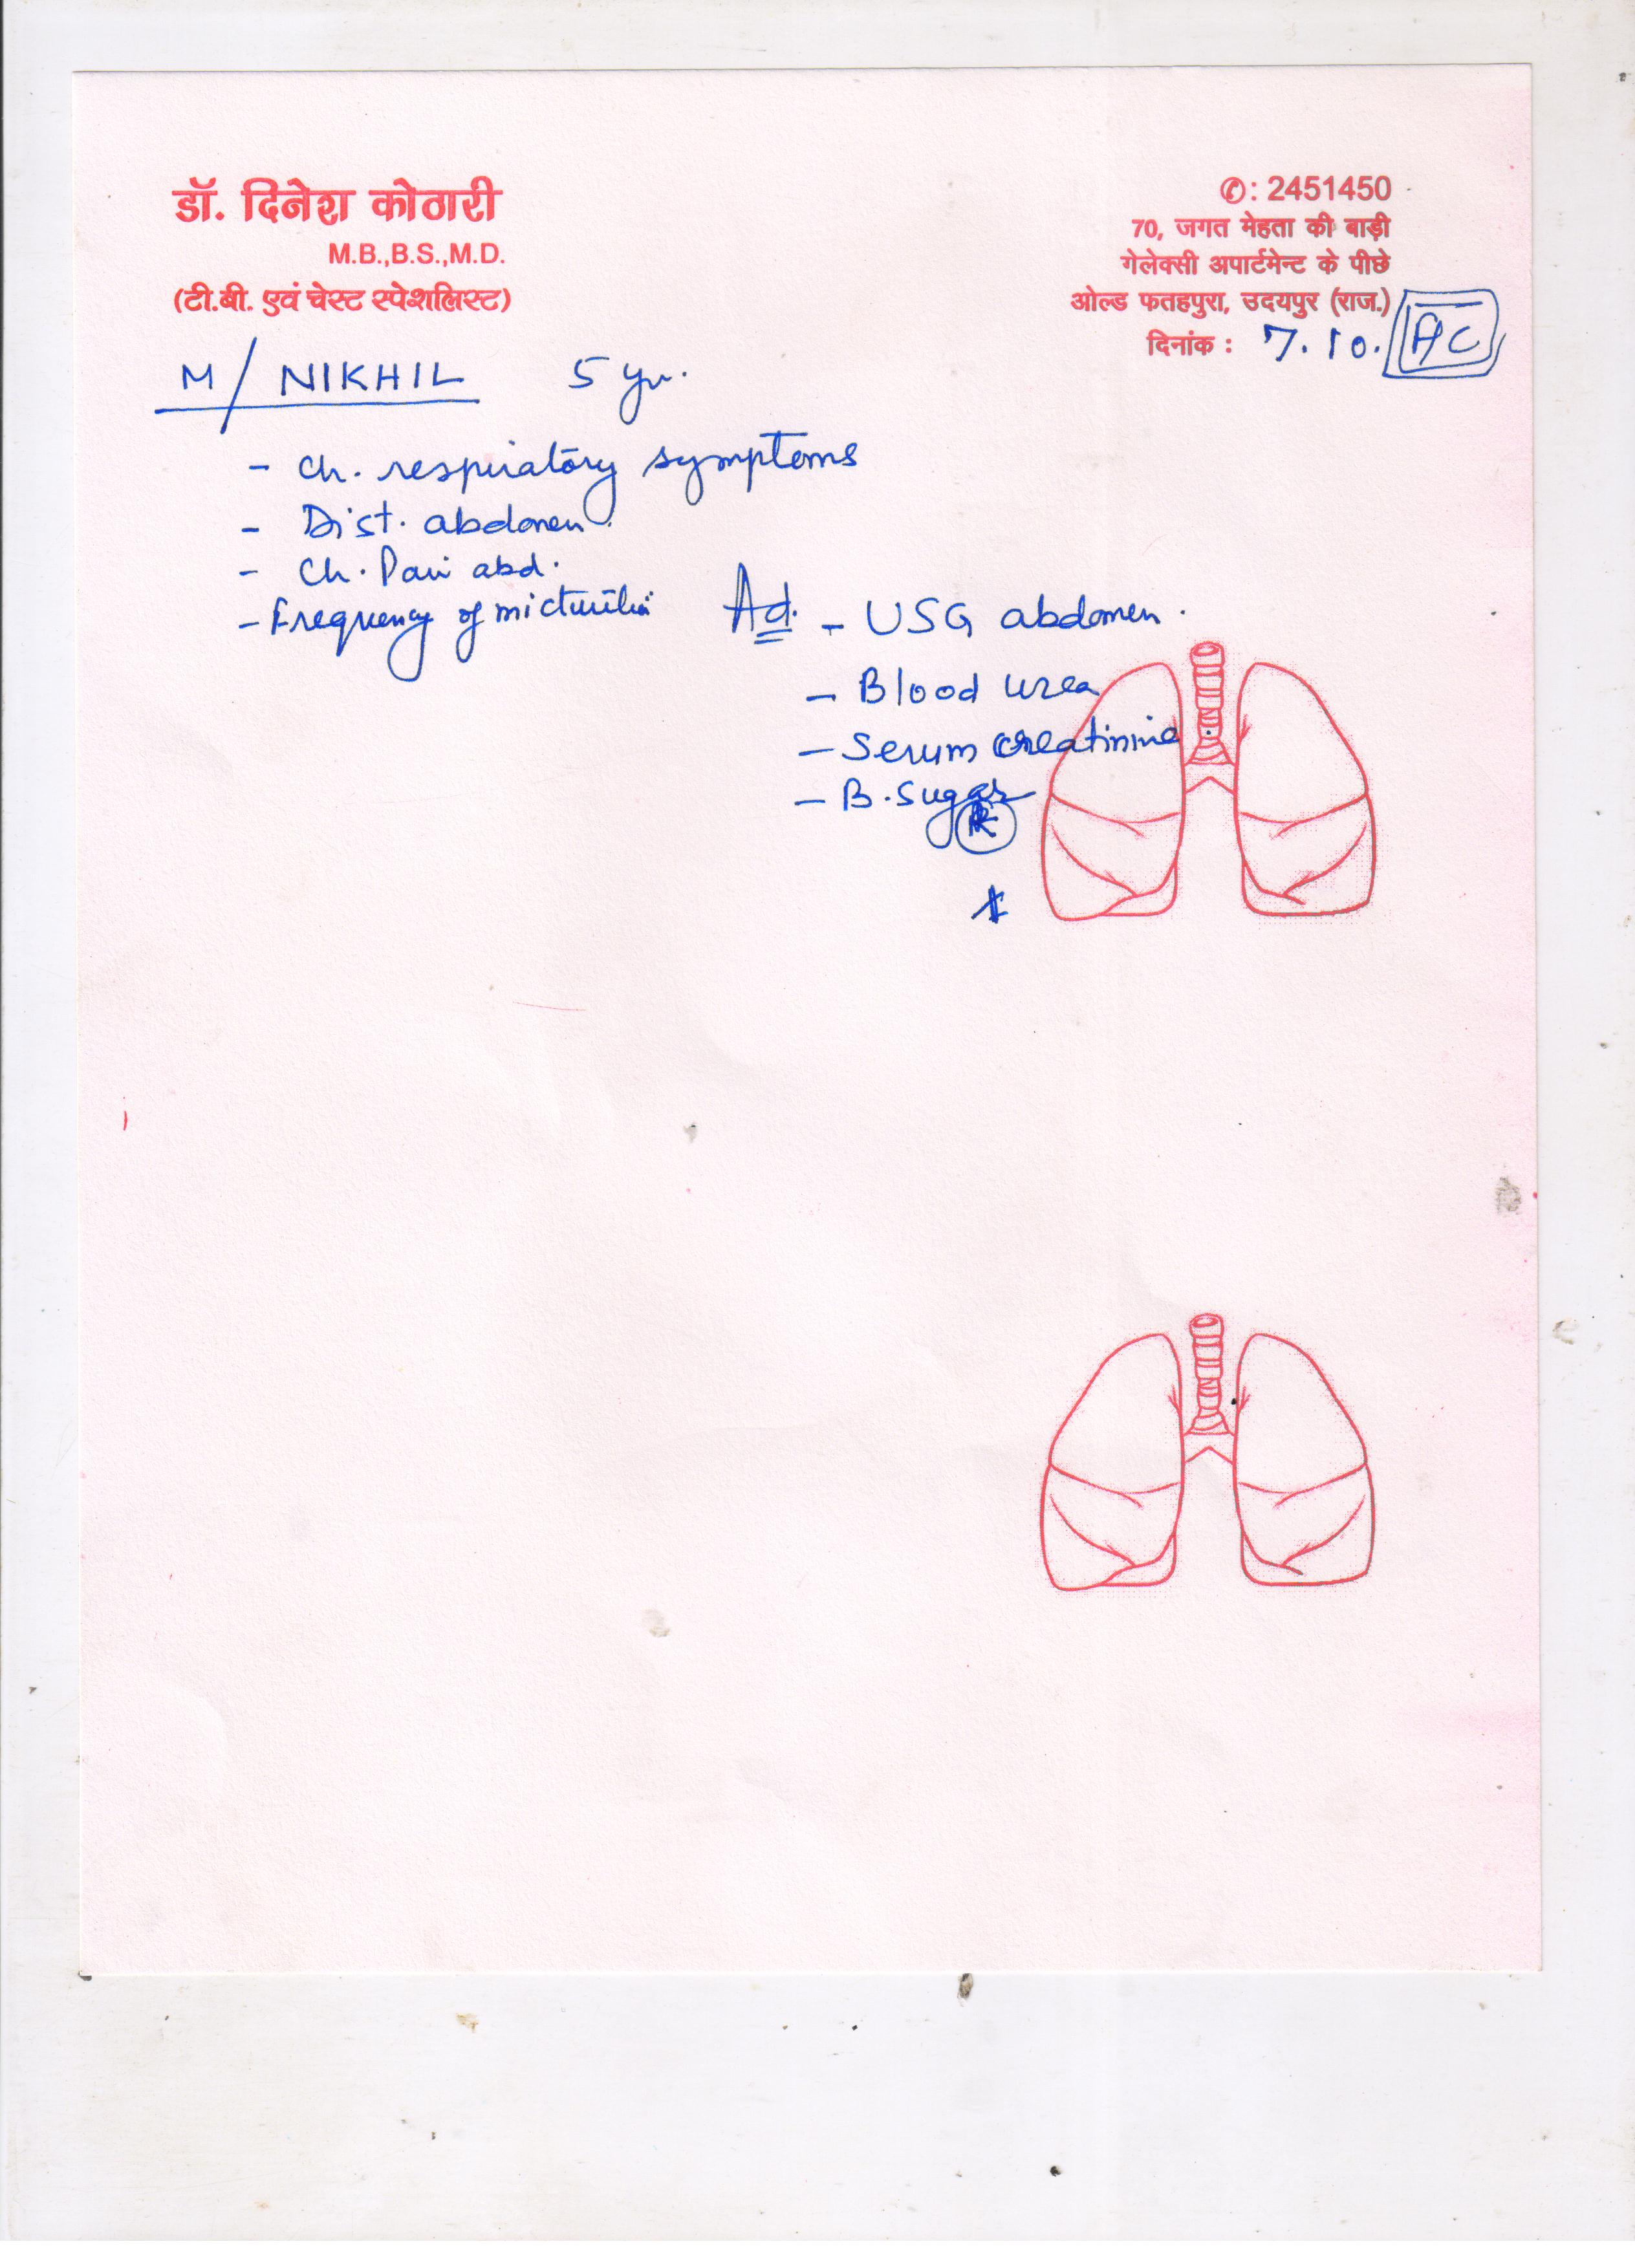 डॉ. दिनेश कोठारी
M.B.,B.S.,M.D.
(टी.बी. एवं चेस्ट स्पेशलिस्ट)
✆: 2451450
70, जगत मेहता की बाड़ी
गेलेक्सी अपार्टमेन्ट के पीछे
ओल्ड फतहपुरा, उदयपुर (राज.)
दिनांक : 7.10.
M/ NIKHIL 5 yr.
- Ch. respiratory symptoms
- Dist. abdomen.
- Ch. Pain abd.
- Frequency of micturition
Ad. - USG abdomen.
- Blood urea
- Serum creatinine.
- B. Sugar
R